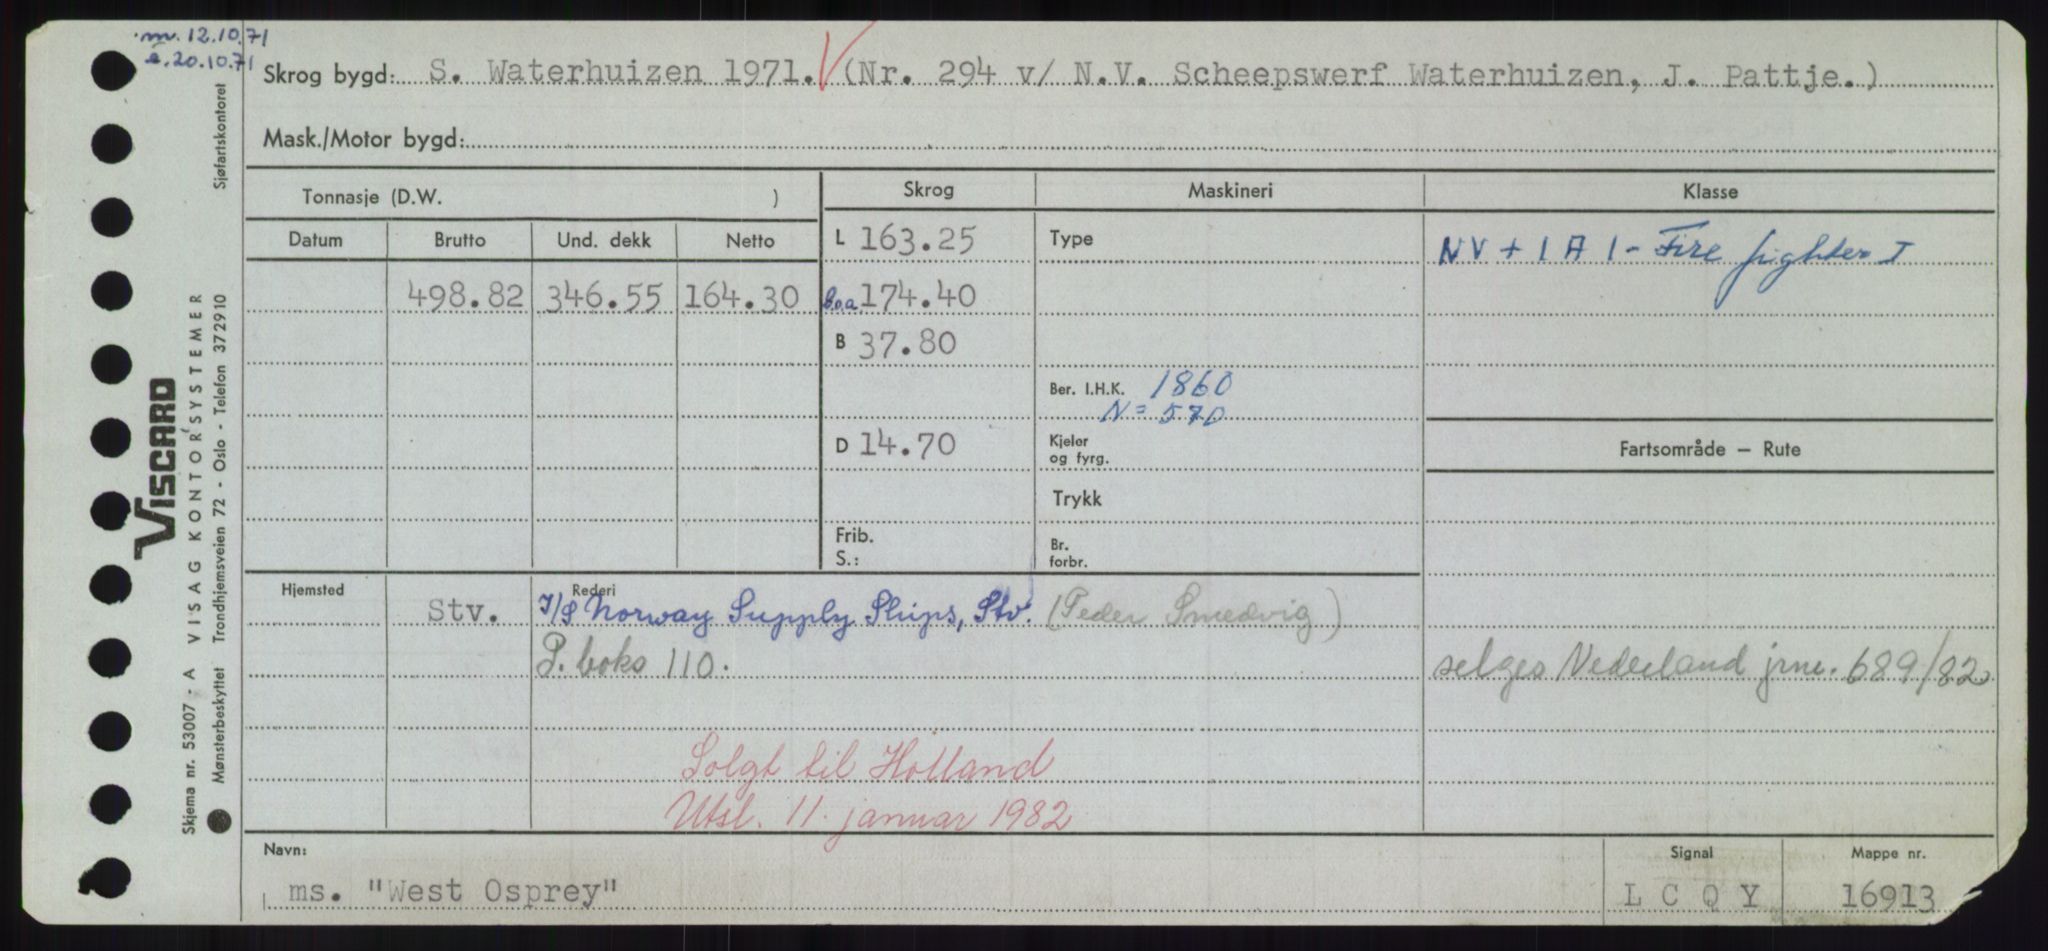 m. 12.10.71
e. 20.10.71
Skrog bygd: S. Waterhuizen 1971. V (Nr. 294 v/ N.V. Scheepswerf Waterhuizen, J. Pattje.)
Mask./Motor bygd:
Tonnasje (D.W. )
Skrog Maskineri Klasse
Datum Brutto Und. dekk Netto
L 163.25
Type
NV + 1 A 1 - Fire fighter I
498.82 346.55 164.30
b.o.a 174.40
B 37.80
Ber. I.H.K. 1860
N = 570
D 14.70
Kjeler
og fyrg.
Fartsområde — Rute
Trykk
Frib.
S.:
Br.
forbr.
Hjemsted
Stv.
Rederi
I/S Norway Supply Ships, Stv. (Peder Smedvig)
P. boks 110.
selges Nederland jrnr. 689/82
Solgt til Holland
Utsl. 11. januar 1982
Navn:
ms. "West Osprey"
Signal
L C Q Y
Mappe nr.
16913
VISCARD
Skjema nr. 53007 - A VISAG KONTORSYSTEMER
Mønsterbeskyttet Trondhjemsveien 72 - Oslo - Telefon 372910 Sjøfartskontoret